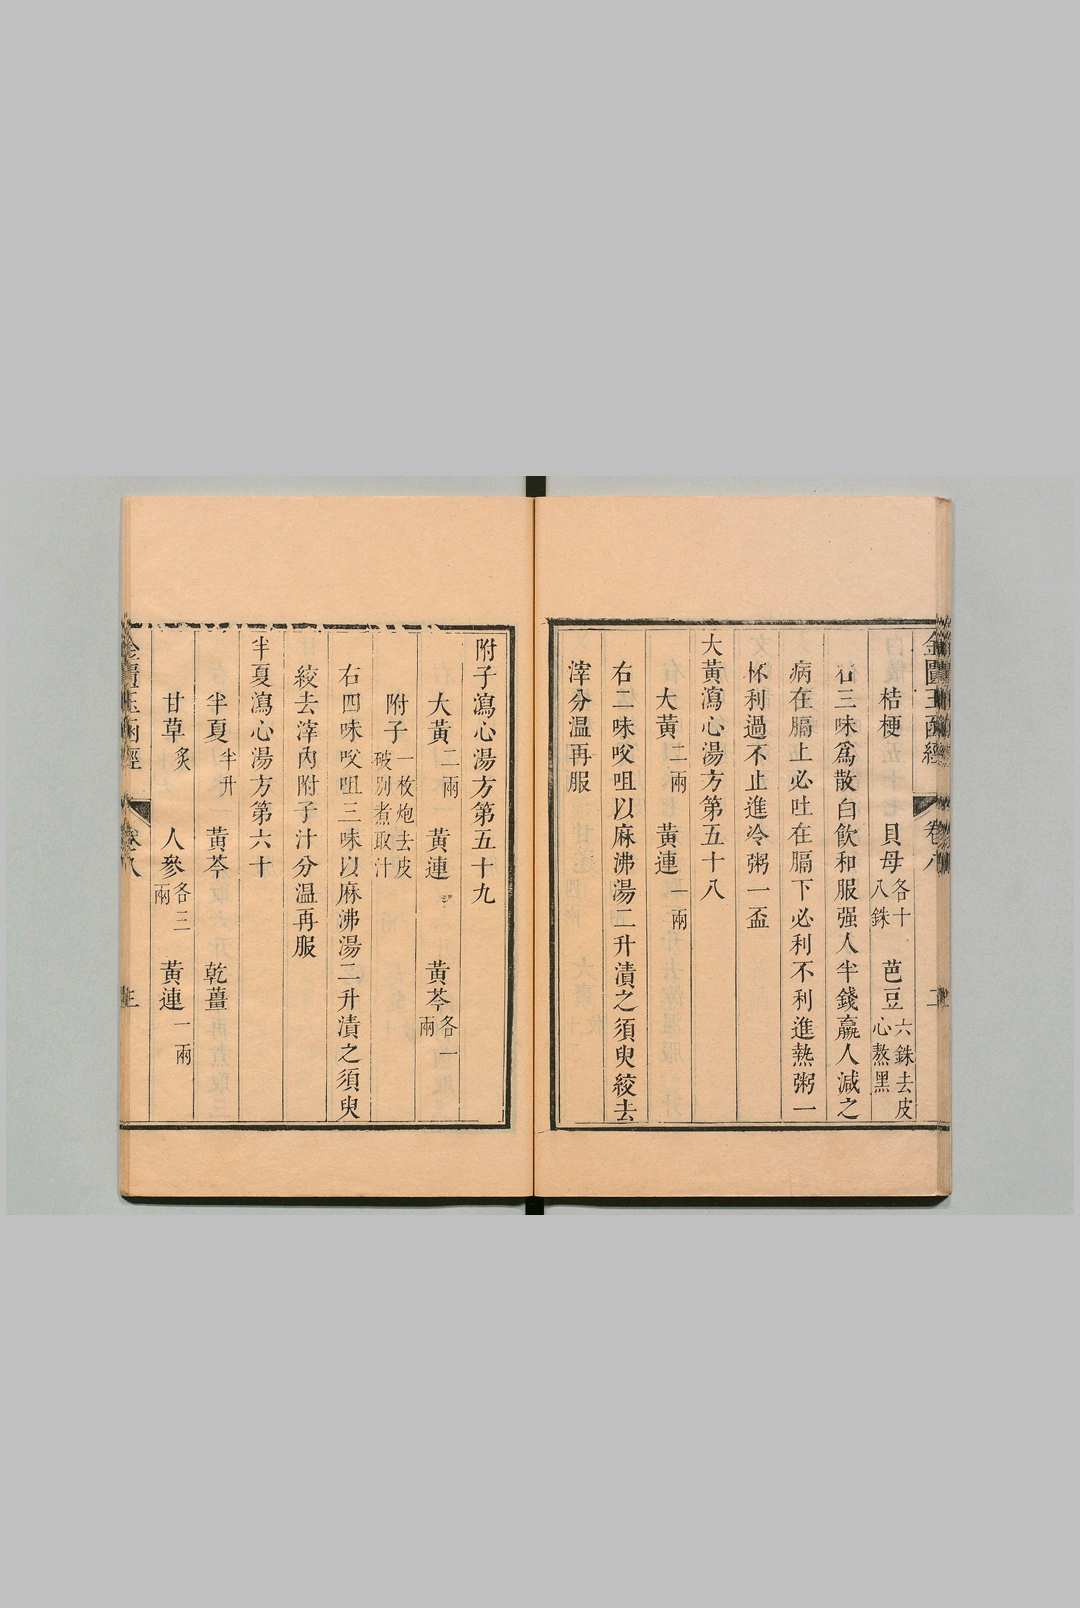 金匱玉函經 卷八
桔梗 貝母各十八銖 芭豆六銖去皮心熬黑
右三味爲散白飲和服强人半錢羸人減之
病在膈上必吐在膈下必利不利進熱粥一
杯利過不止進冷粥一盃
大黃瀉心湯方第五十八
大黃二兩 黃連一兩
右二味㕮咀以麻沸湯二升漬之須臾絞去
滓分温再服
附子瀉心湯方第五十九
大黃二兩 黃連 黃芩各一兩
附子一枚炮去皮破別煮取汁
右四味㕮咀三味以麻沸湯二升漬之須臾
絞去滓內附子汁分温再服
半夏瀉心湯方第六十
半夏半升 黃芩 乾薑
甘草炙 人參各三兩 黃連一兩
金匱玉函經 卷八